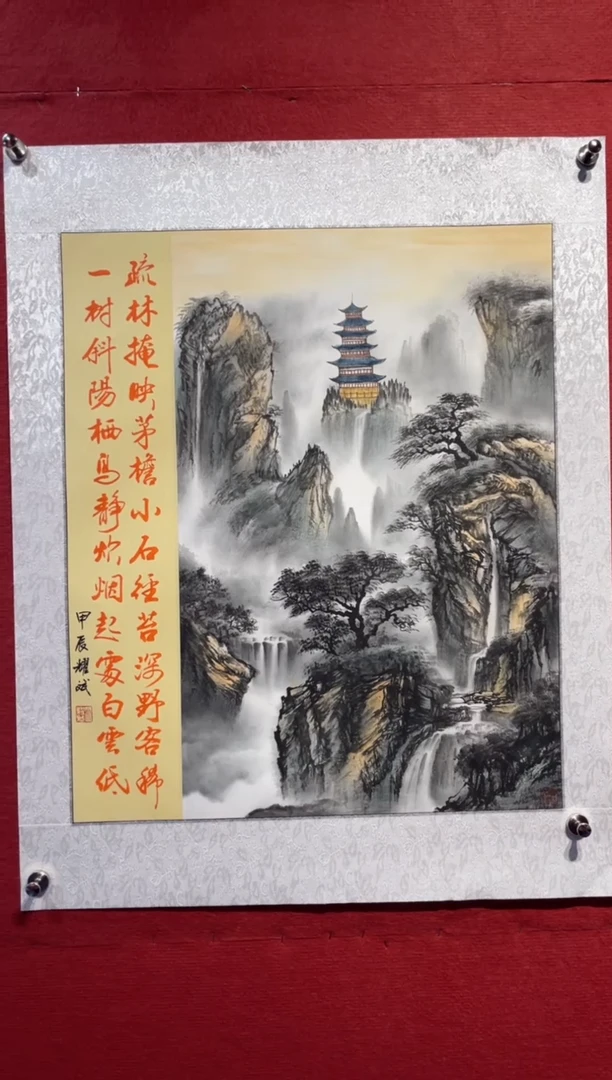 疏林掩映茅檐小石径苔深野客稀
一树斜陽栖鸟静炊烟起處白雲低
甲辰耀斌